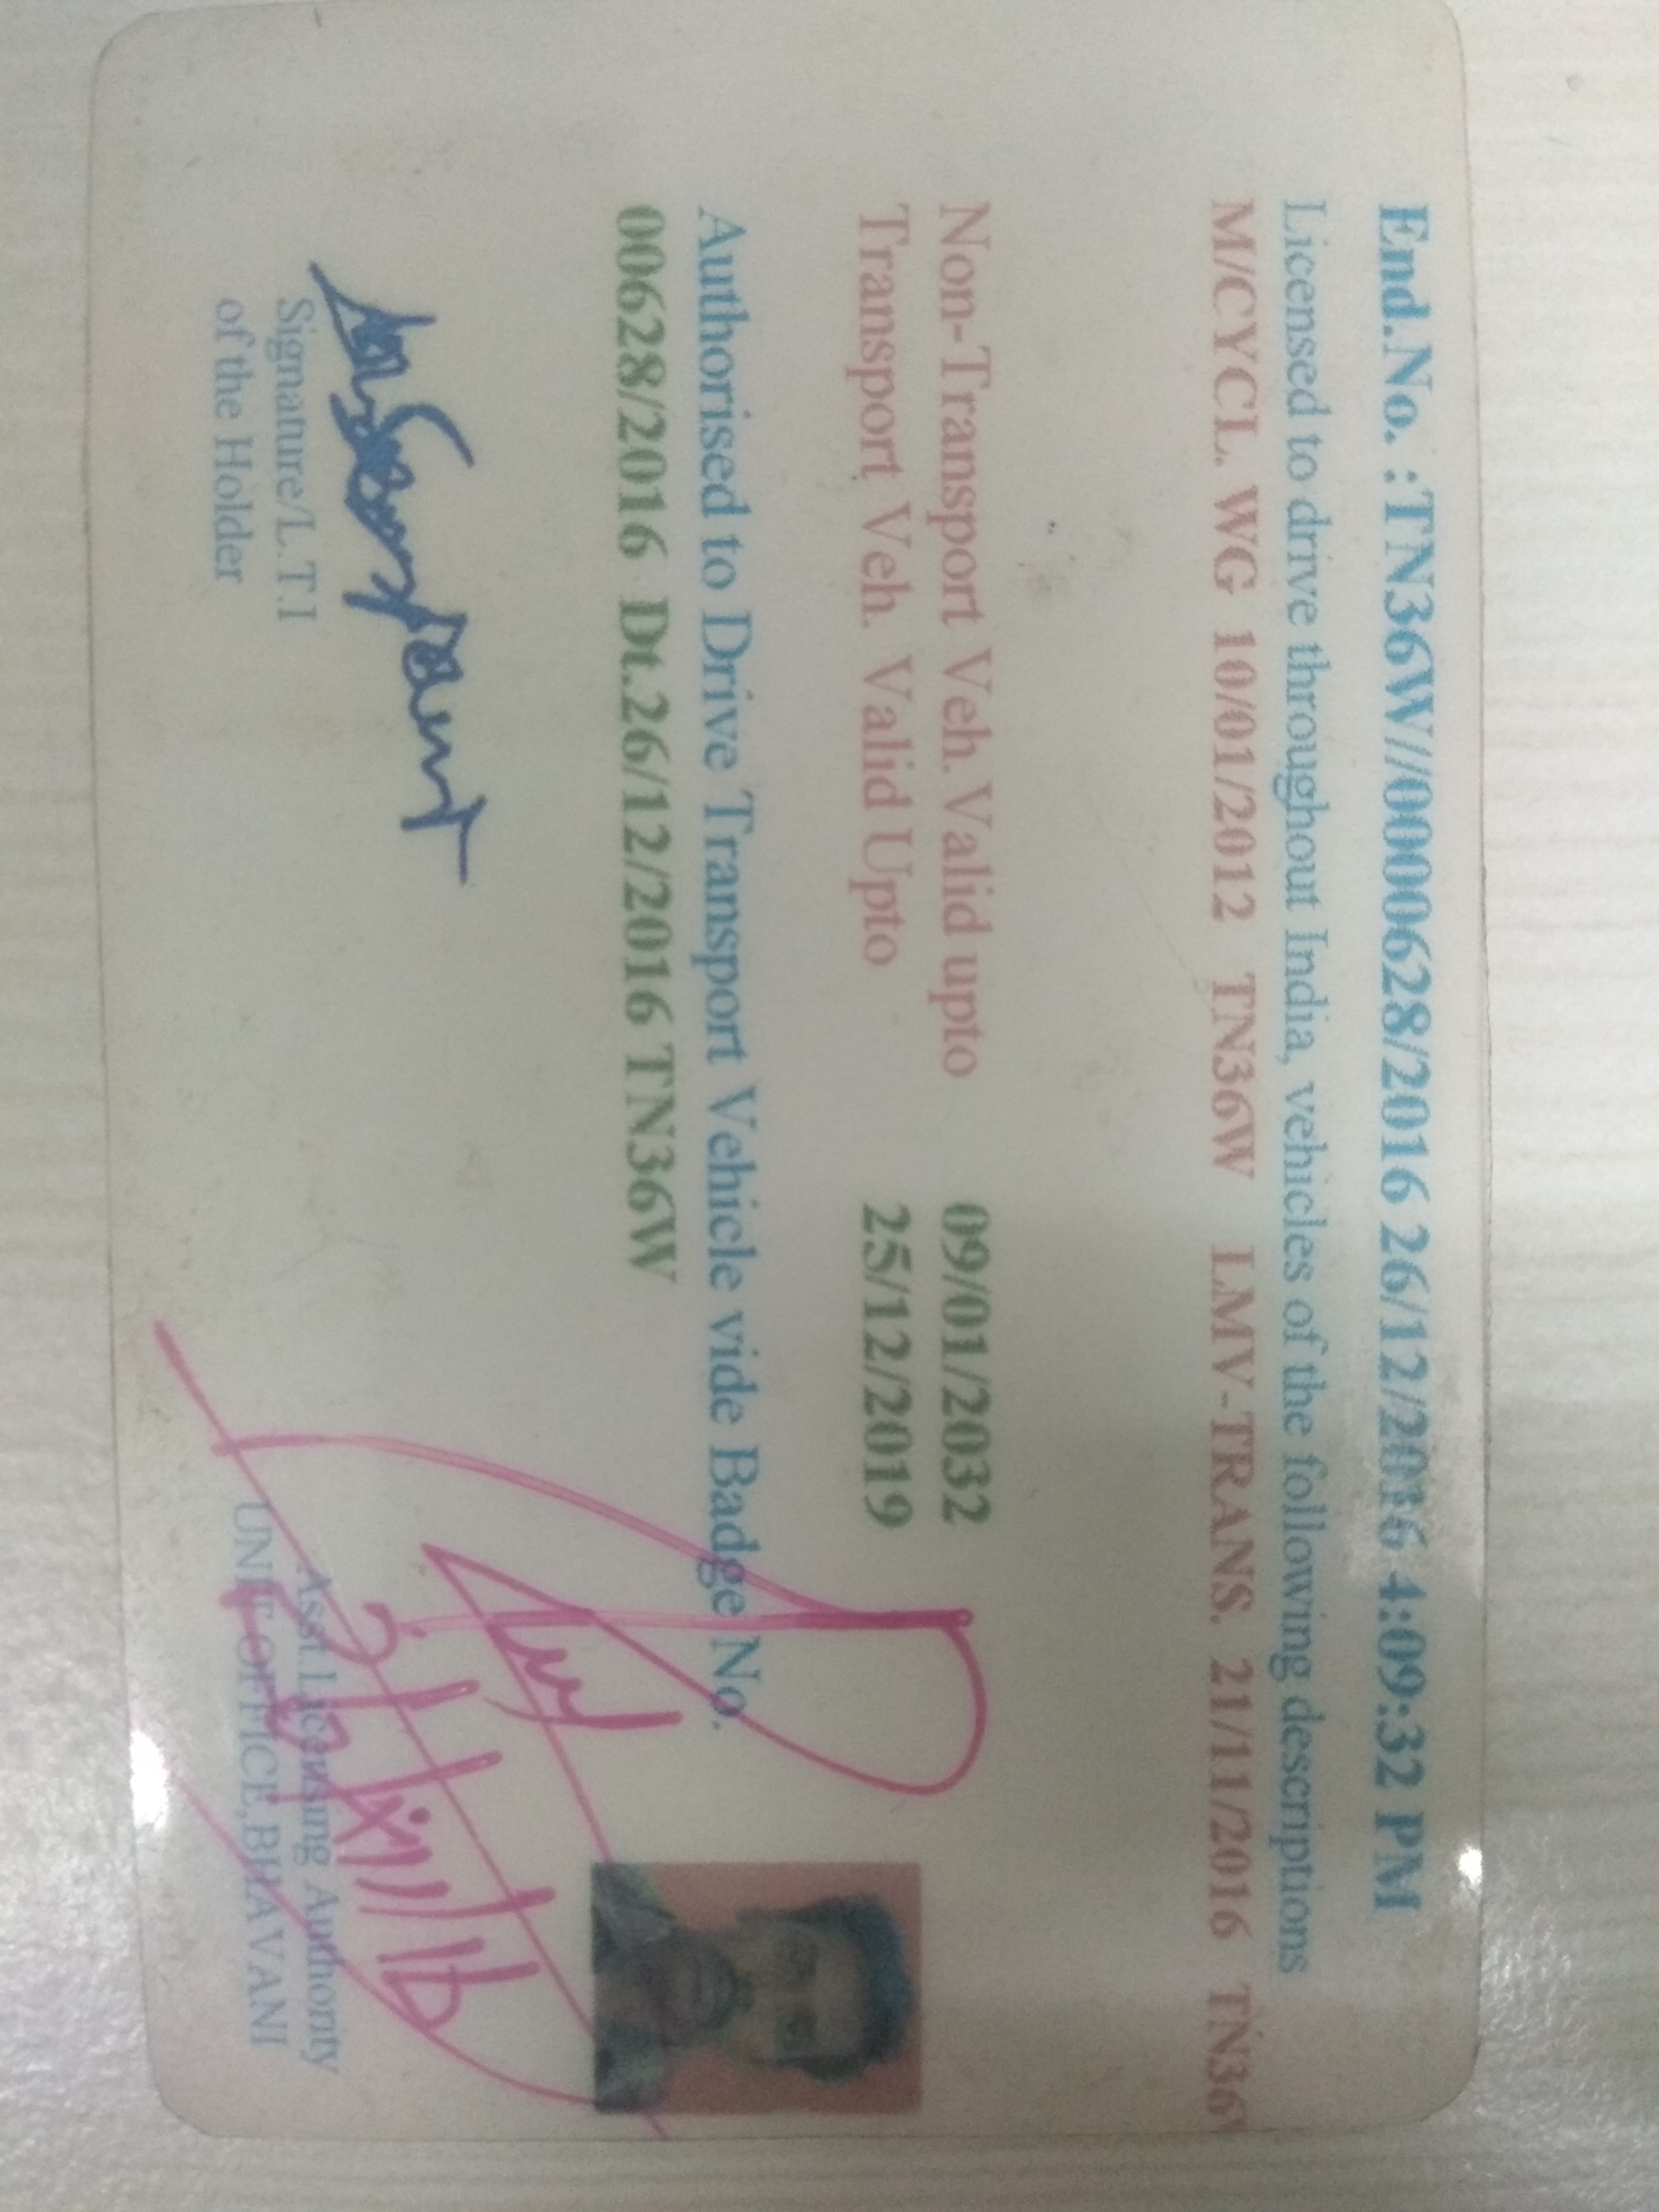 End.No. :TN36W//0000628/2016 26/12/2016 4:09:32 PM
Licensed to drive throughout India, vehicles of the following descriptions
M/CYCL. WG 10/01/2012 TN36W LMV-TRANS. 21/11/2016 TN36W
Non-Transport Veh. Valid upto 09/01/2032
Transport Veh. Valid Upto 25/12/2019
Authorised to Drive Transport Vehicle vide Badge No.
00628/2016 Dt.26/12/2016 TN36W
Signature/L.T.I
of the Holder
Asst.Licensing Authority
UNIT OFFICE,BHAVANI